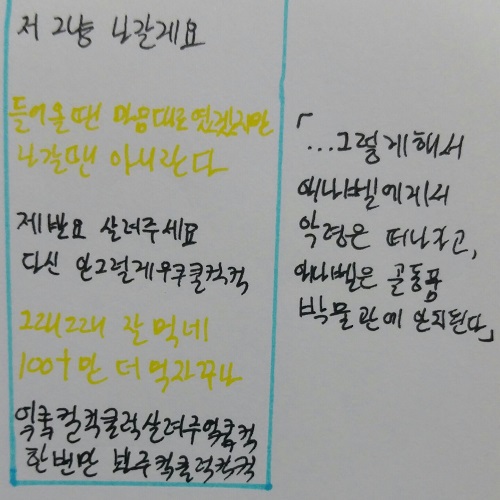 저 그냥 나갈게요
들어올땐 마음대로였겠지만
나갈땐 아니란다
제발요 살려주세요
다신 안그럴게우쿠쿨컥컥
그래그래 잘 먹네
100t만 더 먹자꾸나
억쿨컬컥쿨럭살려주억쿨컥
한번만 봐주컥쿨럭칵컥
「...그렇게해서
애나벨에게서
악령은 떠나고,
애나벨은 골동품
박물관에 안치된다」